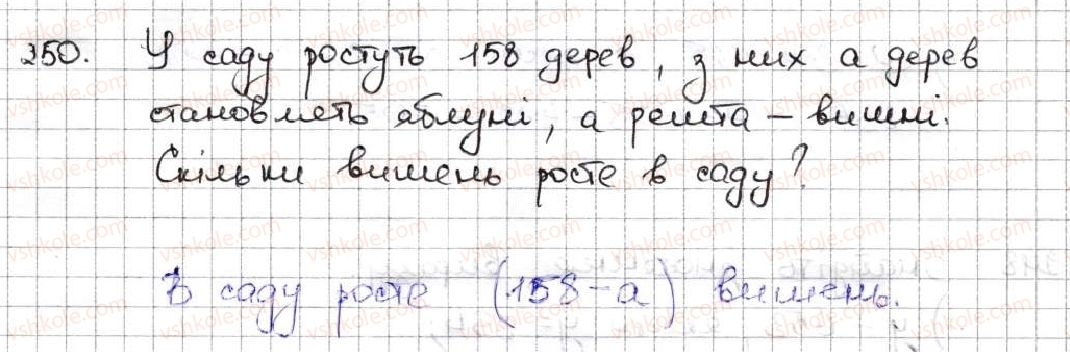 250. У саду ростуть 158 дерев, з них а дерев
становлять яблуні, а решта – вишні.
Скільки вишень росте в саду?
В саду росте (158-а) вишень.